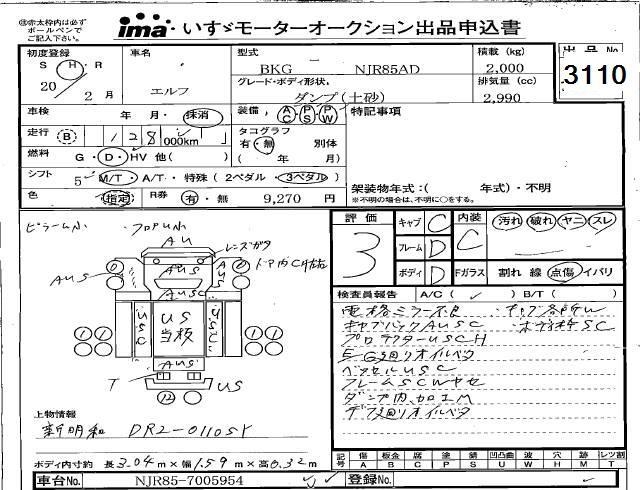 ㊟赤太枠内は必ず
ボールペンで
ご記入下さい。
ima・いすゞモーターオークション出品申込書
初度登録
S・H・R
20 2 月
車名
エルフ
型式
BKG - NJR85AD
グレード・ボディ形状
ダンプ(土砂)
積載 (kg)
2,000
排気量 (cc)
2,990
出品No
3110
車検 年 月・抹消
走行 B 128 000km
燃料 G・D・HV 他( )
シフト 5 M/T・A/T・特殊(2ペダル・3ペダル)
色 指定 R券 有・無 9,270 円
装備 AC・PS・PW
タコグラフ
有・無 別体
( 年 月)
特記事項
架装物年式:( 年式)・不明
※不明の場合は、不明に○をする。
ピラーム小 フロアU小
AU
レンズガタ
AUS
AUS
AUS
AUSC
USC
US
当板
USC
AUS
T
US
12
上物情報
新明和 DR2-0110SY
ボディ内寸約 長3.04m×幅1.59m×高0.32m
車台No. NJR85-7005954
登録No.
評価
3
キャブ C
フレーム D
ボディ D
内装 C
汚れ 破れ ヤニ スレ
Fガラス 割れ 線 点傷 イバリ
検査員報告 A/C( ✓ ) B/T( )
電格ミラー不良
キャブバックAUSC・ボディ各所SC
プロテクターUSCH
E/G廻りオイルベタ
ベッセルUSC
フレームSCWヤセ
ダンプ内、加工M
デフ廻りオイルベタ
記号 傷 板金 腐 塗 錆 凹凸曲 波 穴 跡 レツ割
A B C P S U W H M T